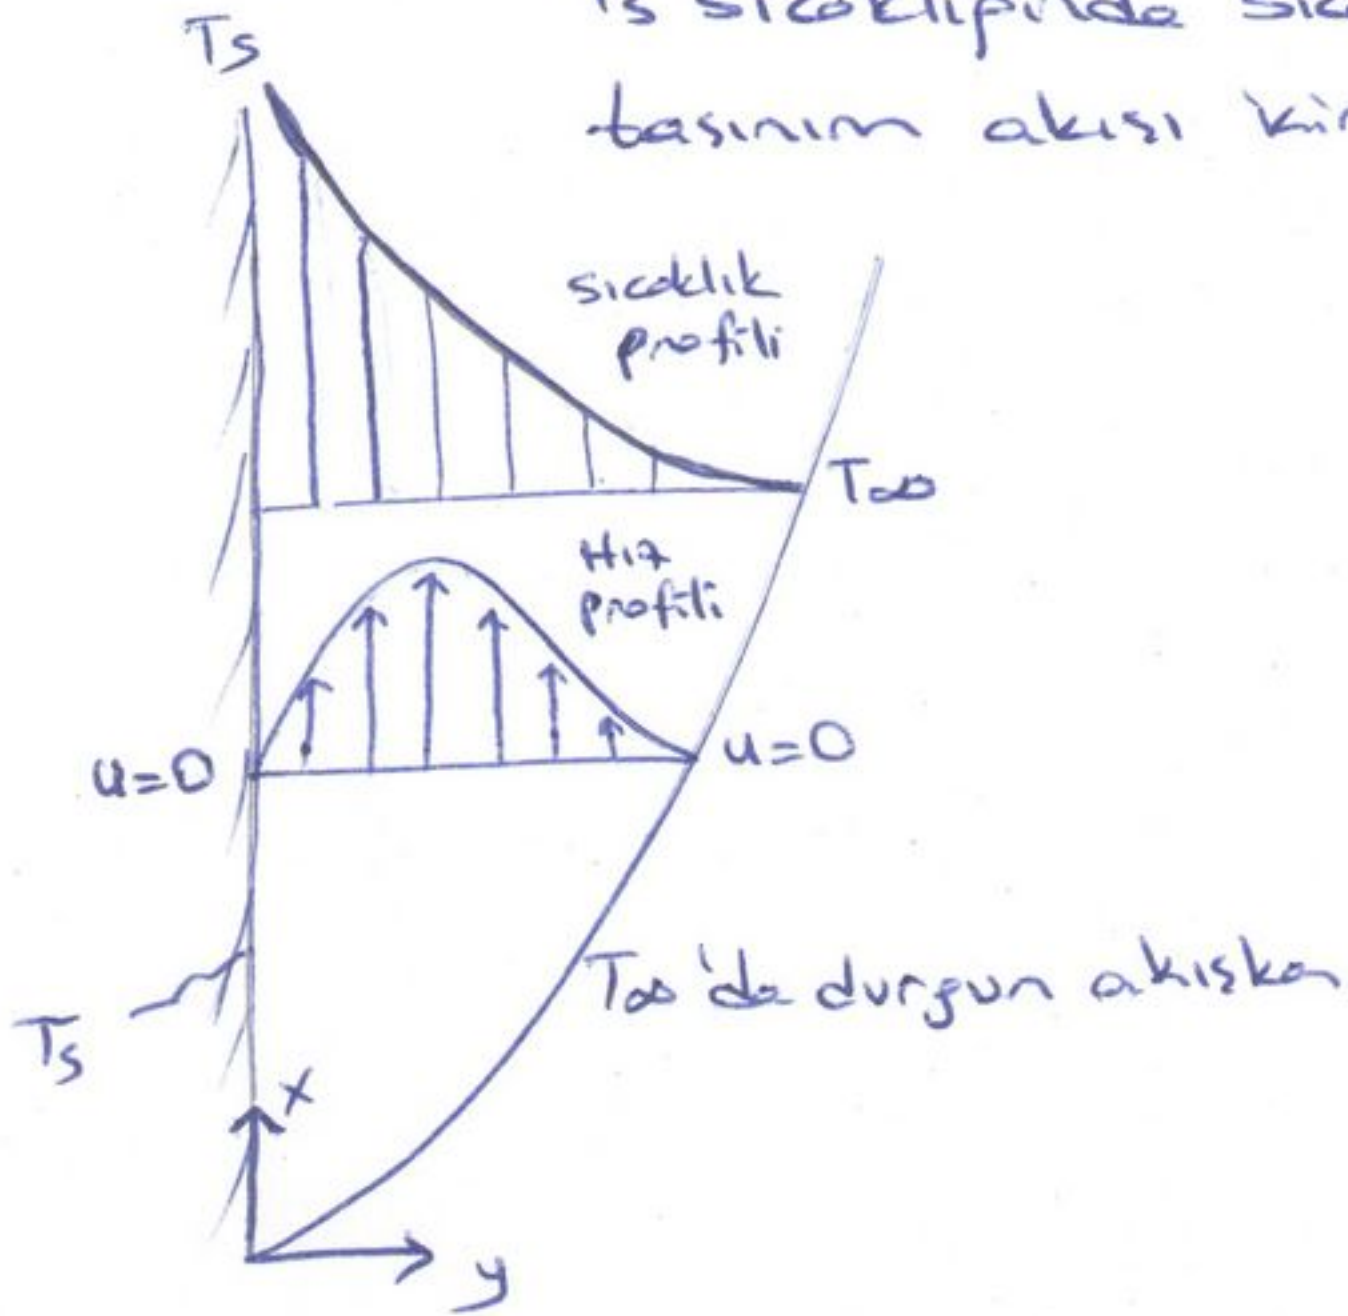 Ts sıcaklığında
taşınım akışı için
Ts
sıcaklık
profili
T∞
Hız
profili
u=0
u=0
T∞'da durgun akışkan
Ts
x
y